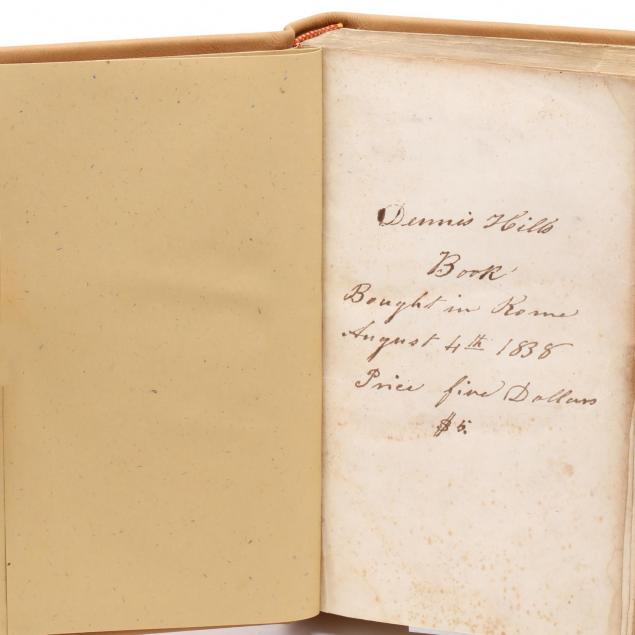 Dennis Hills
Book
Bought in Rome
August 4th 1838
Price five Dollars
$5.